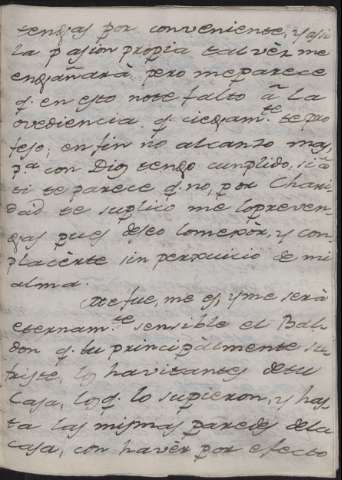 tengas por conveniente, y asi
la pasion propia talvèr me
engañarà, pero me parece
q. en esto no te falto â la
ovediencia q. ciegam.te te pro
feso; en fin no alcanzo mas,
p.a con Dios tengo cumplido, si â
ti te parece q. no, por Chari
dad te suplico me lo preven
gas pues deseo lo mejòr, y con
placèrte sin perjuicio de mi
alma.
Me fue, me es, y me serà
eternam.te sensible el Bal
don q. tu principàlmente su
friste, los havitantes de tu
Casa, los q. lo supieron, y has
ta las mismas paredes de la
casa, con havèr por efecto